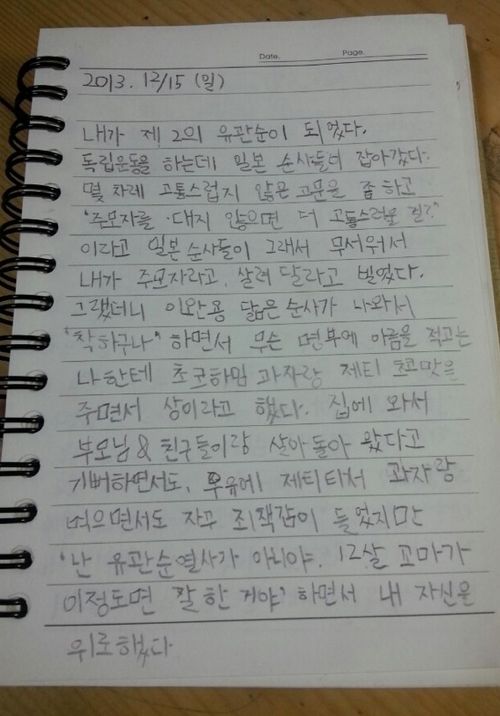 Date. Page.
2013. 12/15 (일)
내가 제 2의 유관순이 되었다.
독립운동을 하는데 일본 순사들이 잡아갔다.
몇 차례 고통스럽지 않은 고문을 좀 하고
'주모자를 대지 않으면 더 고통스러울 걸?'
이라고 일본 순사들이 그래서 무서워서
내가 주모자라고, 살려 달라고 빌었다.
그랬더니 이완용 닮은 순사가 나와서
'착하구나' 하면서 무슨 명부에 이름을 적고는
나한테 초코하임 과자랑 제티 초코맛을
주면서 상이라고 했다. 집에 와서
부모님 & 친구들이랑 살아 돌아 왔다고
기뻐하면서도, 우유에 제티 타서 과자랑
먹으면서도 자꾸 죄책감이 들었지만
'난 유관순 열사가 아니야. 12살 꼬마가
이정도면 잘 한 거야' 하면서 내 자신을
위로했다